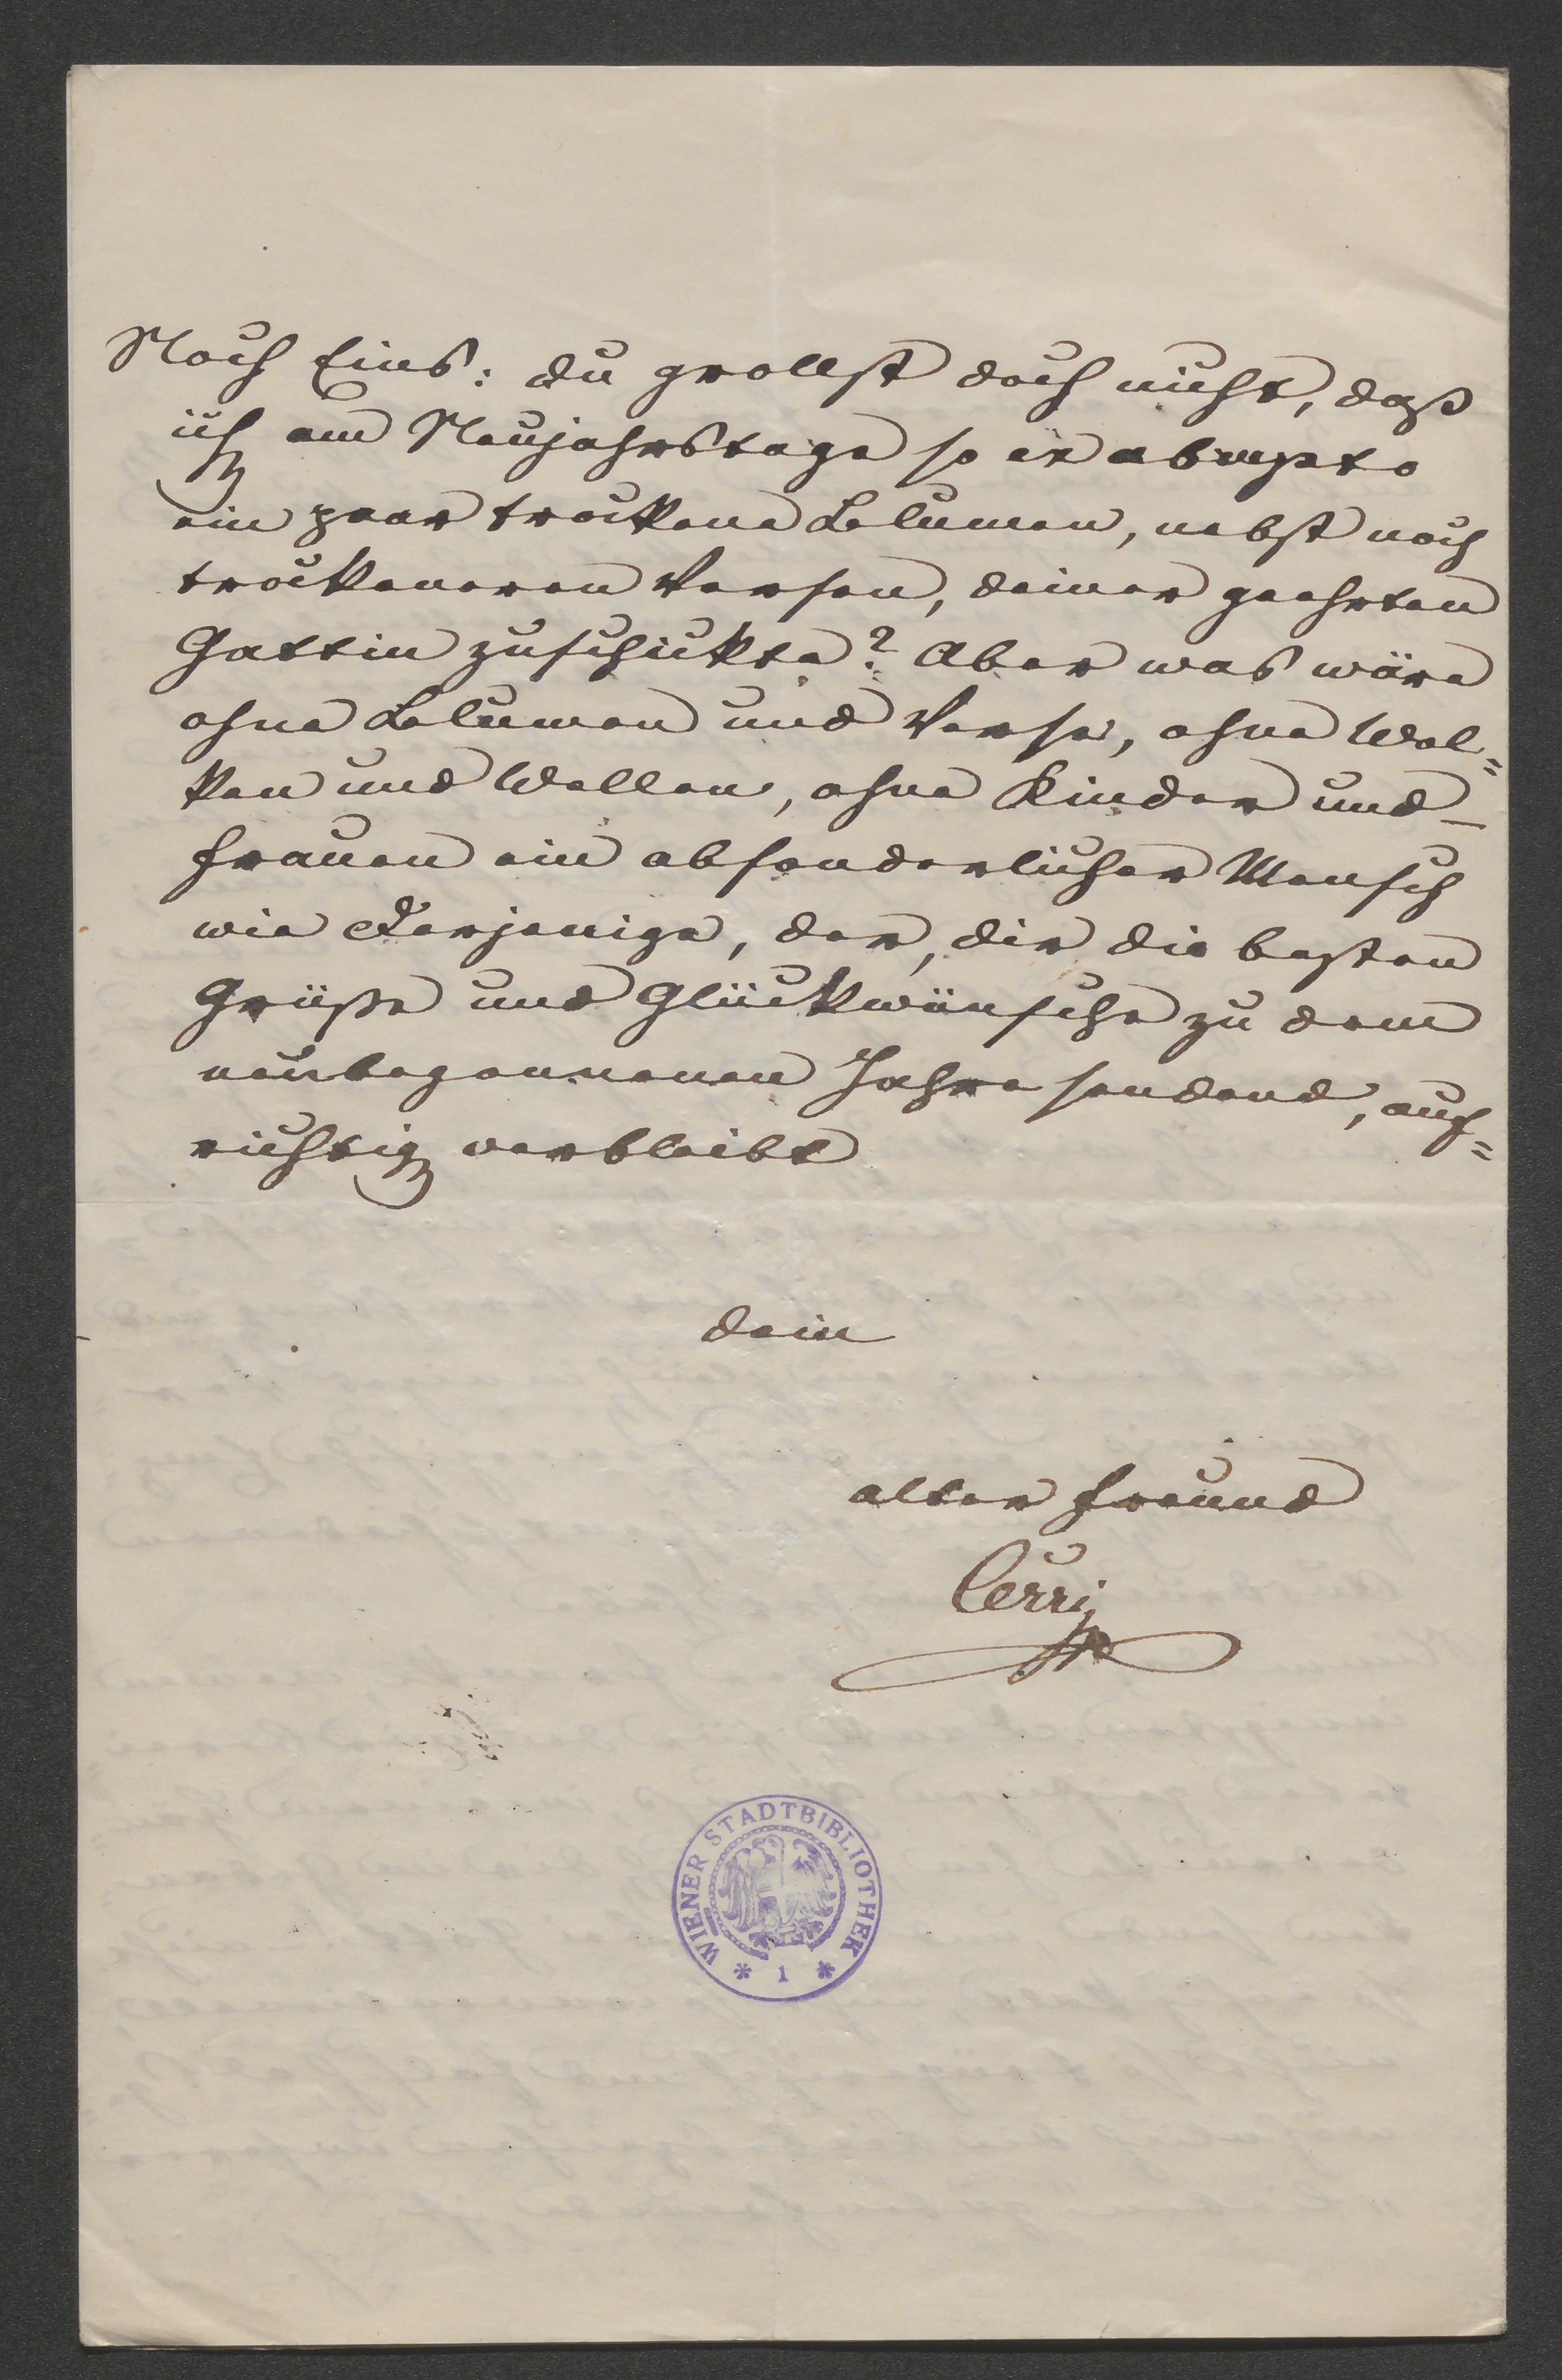 Noch Eins: du grollst doch nicht, daß
ich am Neujahrstage so ex abrupto
ein paar trockene Blumen, nebst noch
trockeneren Versen, deiner geehrten
Gattin zuschickte? Aber was wäre
ohne Blumen und Verse, ohne Wol=
ken und Wellen, ohne Kinder und
Frauen ein absonderlicher Mensch
wie Derjenige, der, dir die besten
Grüße und Glückwünsche zu dem
neubegonnenen Jahre sendend, auf=
richtig verbleibt
dein
alter Freund
Cerri
WIENER STADTBIBLIOTHEK
* 1 *